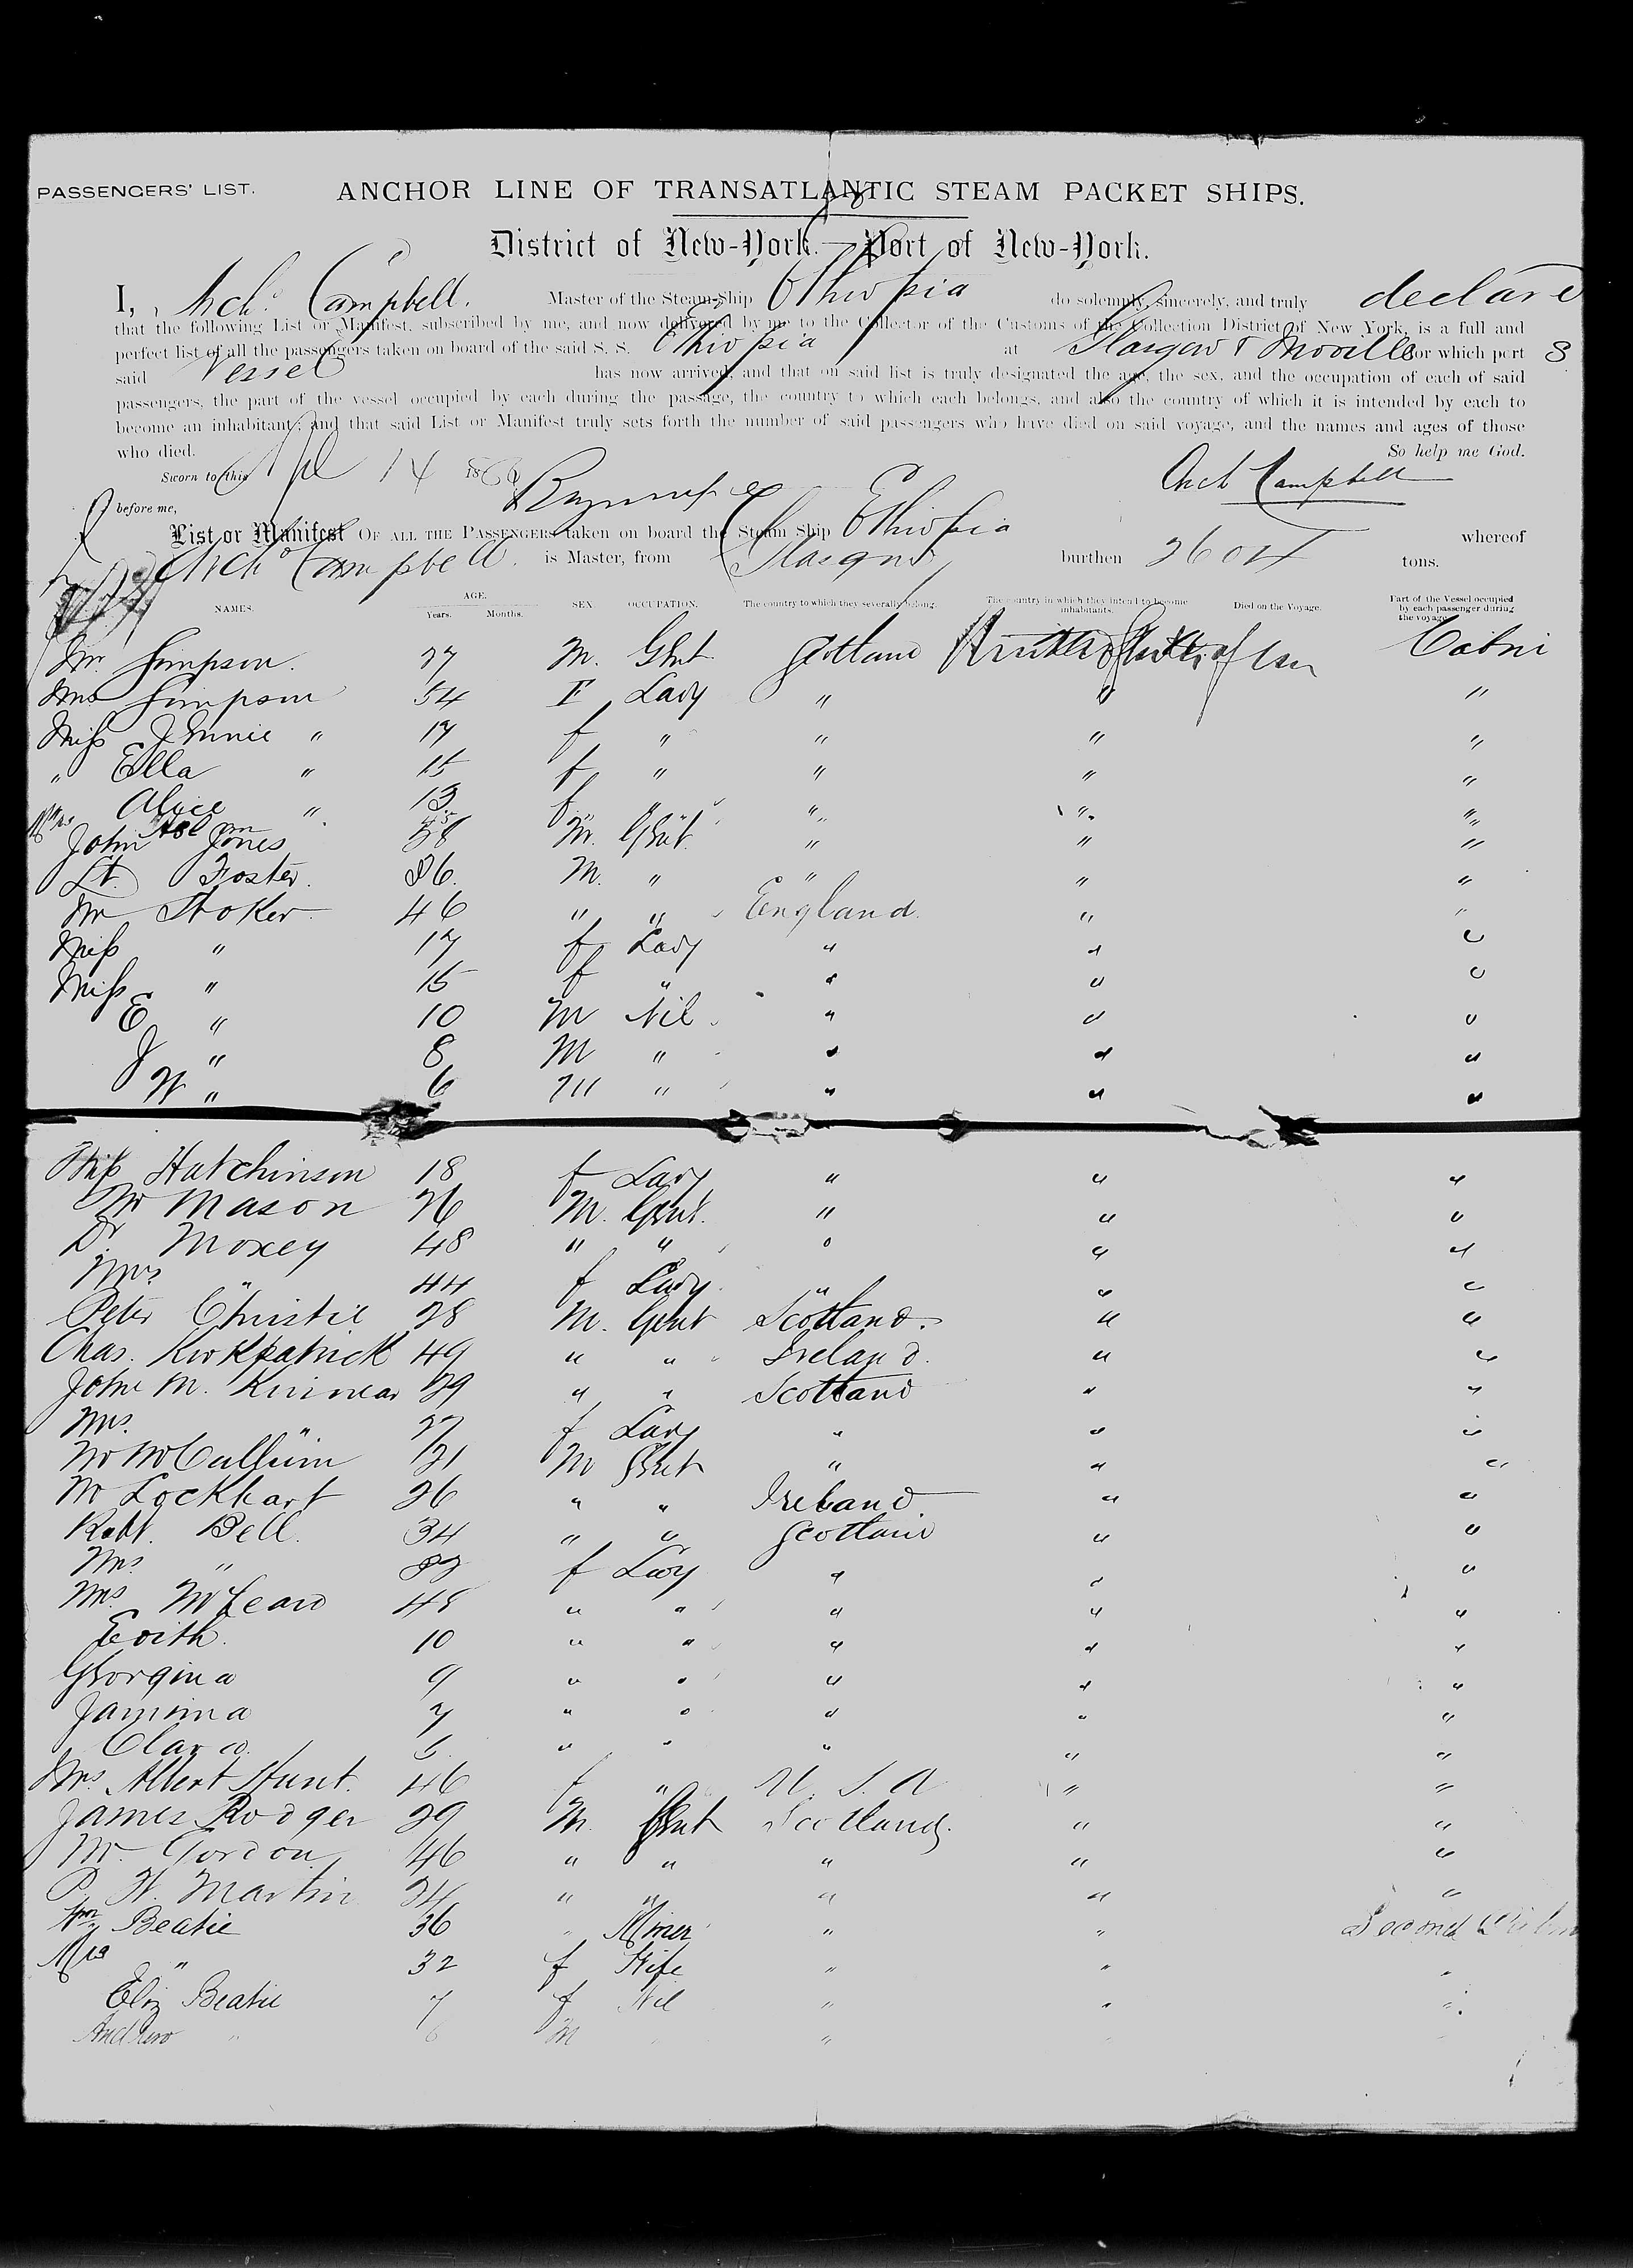 PASSENGERS' LIST. ANCHOR LINE OF TRANSATLANTIC STEAM PACKET SHIPS.
District of New-York.—Port of New-York.
I, Archd. Campbell. Master of the Steam-Ship Ethiopia do solemnly, sincerely, and truly declare
that the following List or Manifest, subscribed by me, and now delivered by me to the Collector of the Customs of the Collection District of New York, is a full and
perfect list of all the passengers taken on board of the said S. S. Ethiopia at Glasgow & Moville for which port
said Vessel has now arrived, and that on said list is truly designated the age, the sex, and the occupation of each of said
passengers, the part of the vessel occupied by each during the passage, the country to which each belongs, and also the country of which it is intended by each to
become an inhabitant; and that said List or Manifest truly sets forth the number of said passengers who have died on said voyage, and the names and ages of those
who died. So help me God.
Sworn to this Apl 14 1886 Arch Campbell
before me,
List or Manifest OF ALL THE PASSENGERS taken on board the Steam Ship Ethiopia whereof
Archd Campbell. is Master, from Glasgow burthen 2604 tons.
NAMES. AGE. Years. Months. SEX. OCCUPATION. The country to which they severally belong. The country in which they intend to become inhabitants. Died on the Voyage. Part of the Vessel occupied by each passenger during the voyage.
Mr Simpson. M. Gent Scotland Cabin
Mrs Simpson 54 F Lady " " "
Miss Jennie " 17 f " " " "
" Ella " 15 f " " " "
Alice " 13 f " " " "
John Jones 28 M. Gent. " " "
Lt. Foster. 26. M. " " " "
Mr Stoker 46 " " England. " "
Miss " 17 f Lady " " "
Miss " 15 f " " " "
E " 10 M Nil " " "
J " 8 M " " " "
W " 6 M " " " "
Miss Hutchinson 18 f Lady " " "
Mr Mason 26 M. Gent. " " "
Dr. Moxey 48 " " " " "
Mrs " 44 f Lady. " " "
Peter Christie 28 M. Gent Scotland. " "
Chas. Kirkpatrick 49 " " Ireland. " "
John M. Kinnear 29 " " Scotland " "
Mrs. " 27 f Lady " " "
Mr McCallum 21 M Gent " " "
Mr Lockhart 26 " " Ireland " "
Robt. Bell. 34 " " Scotland " "
Mrs. " f Lady " " "
Mrs. 48 " " " " "
Edith. 10 " " " " "
Georgina 9 " " " " "
Jamima 7 " " " " "
Clara. " " " " "
Mrs. Albert Hunt. 46 f " U. S. A " "
James Rodger 29 M. Gent Scotland. " "
Mr. Gordon 46 " " " " "
P. W. Martin 24 " " " " "
Wm Beatie 36 " Miner " " Second Cabin
Mrs " 32 f Wife " " "
Eliz Beatie 7 f Nil " " "
Andrew " 6 M " "